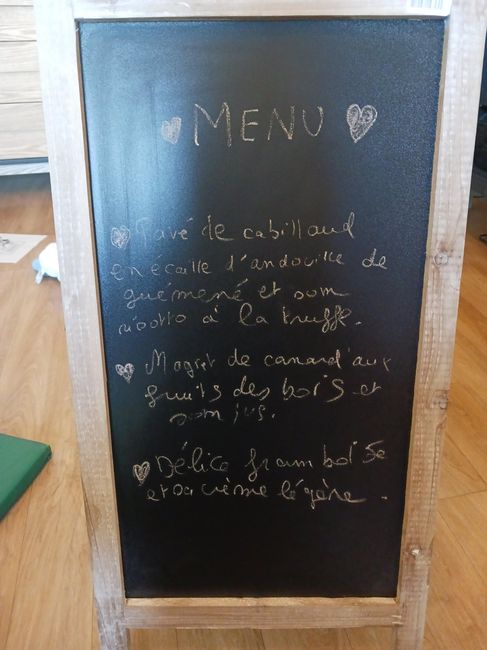 MENU
Pavé de cabillaud
en écaille d'andouille de
guémené et som
risotto à la truffe.
Magret de canard aux
fruits des bois et
som jus.
Délice framboise
et sa crème légère.